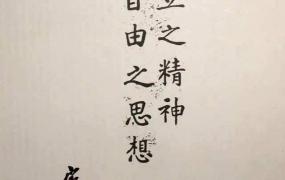 立之精神
自由之思想